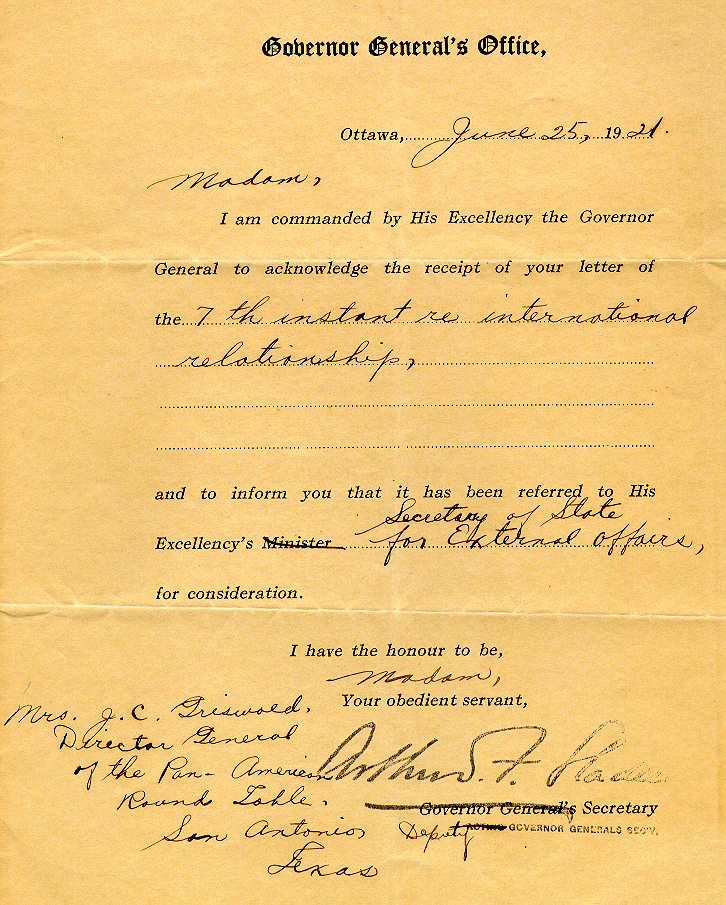 Governor General's Office,
Ottawa, June 25, 1921.
Madam,
I am commanded by His Excellency the Governor
General to acknowledge the receipt of your letter of
the 7th instant re international
relationship,
and to inform you that it has been referred to His
Secretary of State
Excellency's Minister for External Affairs,
for consideration.
I have the honour to be,
Madam,
Your obedient servant,
Mrs. J. C. Griswold,
Director General
of the Pan-American
Round Table,
San Antonio,
Texas
Arthur F.
Governor General's Secretary
Deputy ACTING GOVERNOR GENERALS SEC'Y.